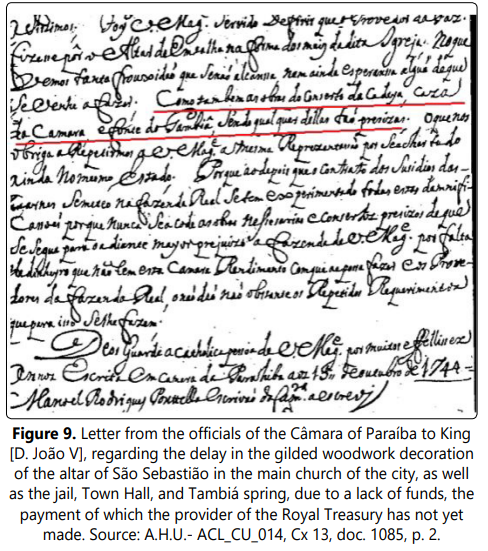 Servido Deferir que o Provedor da faz.
Altar de Emtalha na forma dos mais da dita Igreja. No que
vemos tanta frouxidaõ que senaõ alcansa nem ainda esperansa algũa deque
Se venha a fazer. Como tambem as obras do Conserto da Cadeya, Caza
da Camara e fonte do Tambiá, Sendo qualquer dellas taõ precizas. O que nos
obriga a Repetirmos a V. Mag.e a mesma Reprezentaçaõ por Se achar tudo
ainda no mesmo estado. Porque ao depois que o Contrato dos
na fazenda Real Se tem experimentado todas essas damnifi-
porque nunca Se acode as obras necesarias e Consertos precizos deque
Se Segue para o adiente mayor prejuizo a fazenda de V. Mag.e por falta
de dinheyro que naõ tem essa Camara Rendimento Com que as possa fazer e os Prove-
dores da fazenda Real, naõ obstante os Repetidos Requerimentos
que para isso Se lhe fazem.
Deos Guarde a Catholica pessoa de V. Mag.e por muitos e
annos Escrita em Camara da Parahiba aos 13 de outubro de 1744
Manoel Rodrigues Portella escrivaõ da Cam.ª a escrevi
Figure 9. Letter from the officials of the Câmara of Paraíba to King
[D. João V], regarding the delay in the gilded woodwork decoration
of the altar of São Sebastião in the main church of the city, as well
as the jail, Town Hall, and Tambiá spring, due to a lack of funds, the
payment of which the provider of the Royal Treasury has not yet
made. Source: A.H.U.- ACL_CU_014, Cx 13, doc. 1085, p. 2.